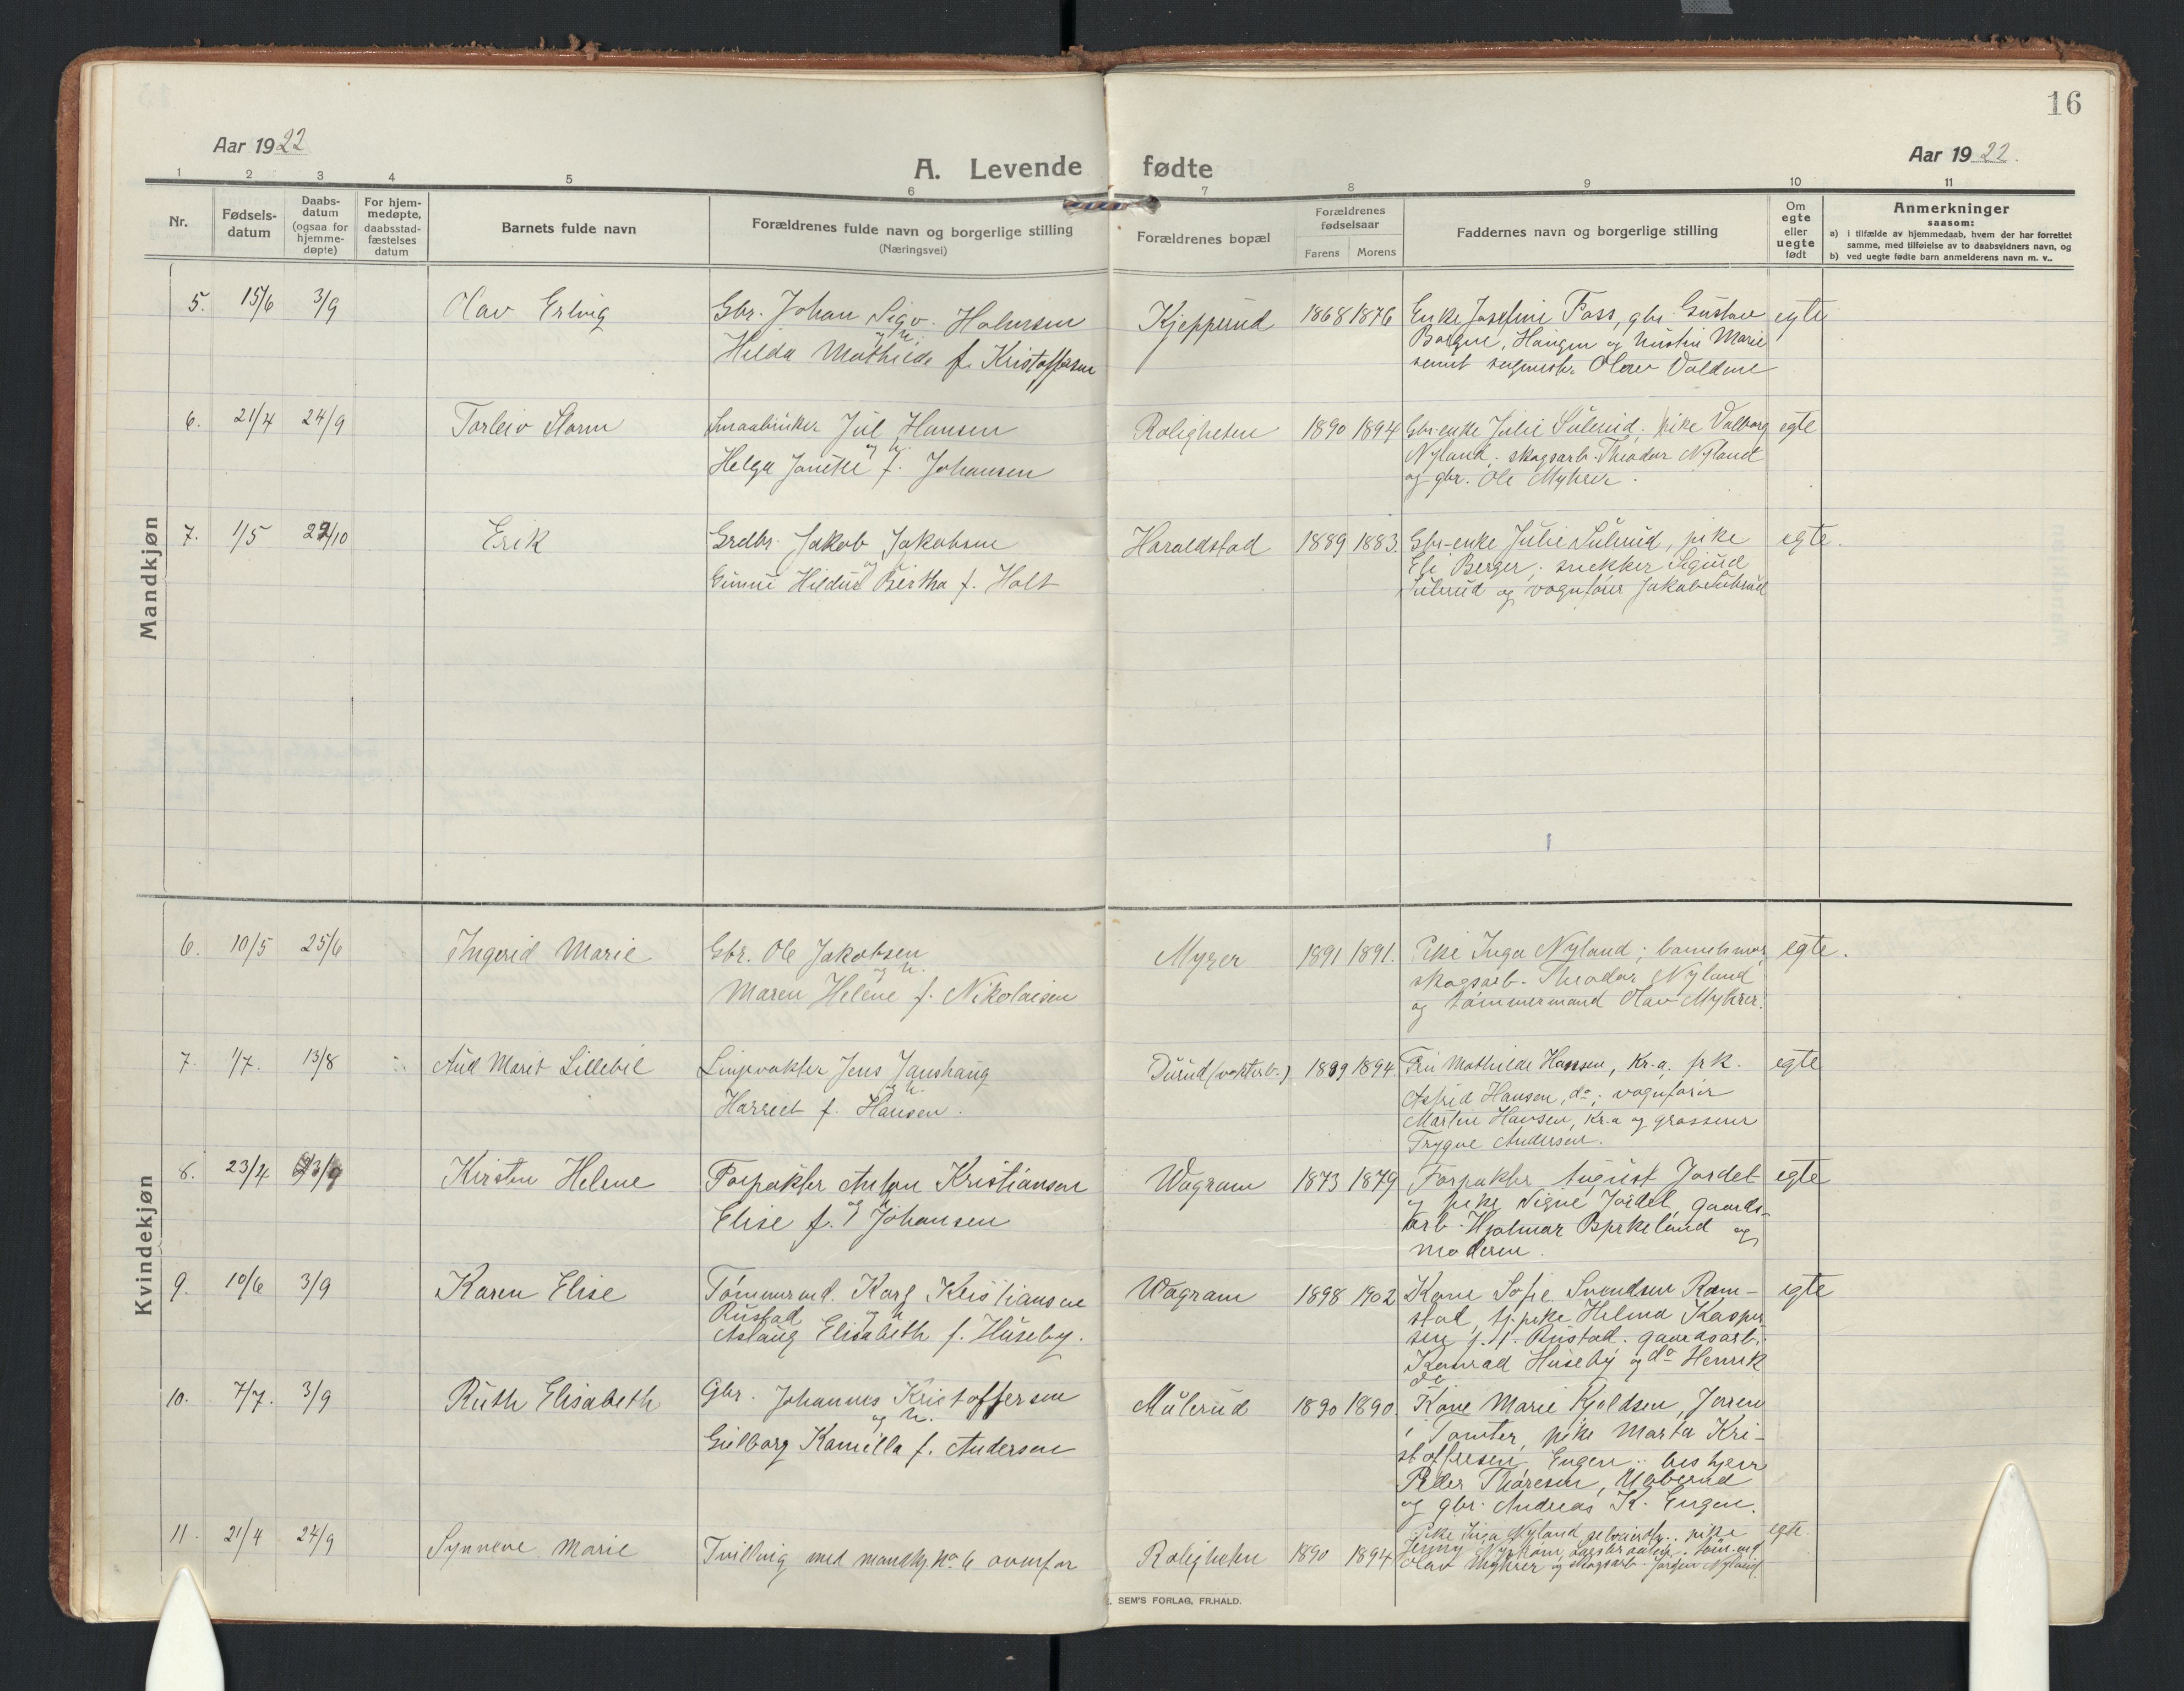 16
Aar 1922
Aar 1922.
A. Levende fødte
1 2 3 4 5 6 7 8 9 10 11
Nr.
Fødsels-
datum
Daabs-
datum
(ogsaa for
hjemme-
døpte)
For hjem-
medøpte,
daabsstad-
fæstelses
datum
Barnets fulde navn
Forældrenes fulde navn og borgerlige stilling
(Næringsvei)
Forældrenes bopæl
Forældrenes
fødselsaar
Farens Morens
Faddernes navn og borgerlige stilling
Om
egte
eller
uegte
født
Anmerkninger
saasom:
a) i tilfælde av hjemmedaab, hvem der har forrettet
samme, med tilføielse av to daabsvidners navn, og
b) ved uegte fødte barn anmelderens navn m. v..
Mandkjøn
5. 15/6 3/9 Olav Erling Gbr. Johan Sigv. Halvorsen Kjeppund 1868 1876 Enke Josefine Foss, gbr. Gustav egte
og h.
Hilda Mathilde f. Kristoffersen
Borgen, Haugen og hustru Marie
samt Olav Valdene
6. 21/4 24/9 Torleiv Storm Smaabruker Jul Hansen Roligheten 1890 1894 Gbr-enke Julie Sulerud; pike Valborg egte
og h.
Helga Janette f. Johansen
Nyland; skogsarb. Theodor Nyland
og gbr. Ole Myhrer.
7. 1/5 29/10 Erik Grdbr. Jakob Jakobsen Haraldstad 1889 1883. Gbr-enke Julie Sulerud, pike egte.
og h.
Gunni Hildur Bertha f. Holt
Eli Berger; snekker Sigurd
Sulerud og vognfører Jakob Sulerud
Kvindekjøn
6. 10/5 25/6 Ingerid Marie Gbr. Ole Jakobsen Myrer 1891 1891. Pike Inga Nyland; barnets mor, egte.
og h.
Maren Helene f. Nikolaisen
skogsarb. Theodor Nyland
og tømmermand Olav Myhrer.
7. 1/7. 13/8 Aud Marit Lillebil Linjevokter Jens Janshaug Durud (vokterb.) 1889 1894 Fru Mathilde Hansen, Kr.a. frk. egte
og h.
Harriet f. Hansen.
Astrid Hansen, do; vognfører
Martin Hansen, Kr.a og grosserer
Trygve Andersen.
8. 23/4 3/9 Kirsten Helene Forpakter Anton Kristiansen Wagram 1873 1879 Forpakter August Jordet egte
og h
Elise f. Johansen
og pike Signe Jordet, gaards-
arb. Hjalmar Bjrkeland og
moderen.
9. 10/6 3/9 Karen Elise Tømmermd. Karl Kristiansen Wagram 1898 1902 Kone Sofie Svendsen Ram- egte
Rustad og h
Aslaug Elisabeth f. Huseby.
stad, tj.pike Helma Kasper-
sen, Rustad. gaardsarb.
Konrad Huseby og do Henrik
do
10. 7/7. 3/9 Ruth Elisabeth Gbr. Johannes Kristoffersen Mulerud 1890 1890. Kone Marie Kjeldsen, Jorren
og h.
Gulborg Kamilla f. Andersen
i Tomter, pike Marta Kri-
stoffersen, Engen;
Peder Thoresen, Ulverud
og gbr. Andreas K. Engen.
11. 21/4 24/9 Synnøve Marie Tvilling med mandkj. no 6 ovenfor Roligheten 1890 1894 Pike Inga Nyland, pike egte.
Jenny
Olav Myhrer og skogsarb. Jørgen Nyland.
SEM'S FORLAG, FR.HALD.